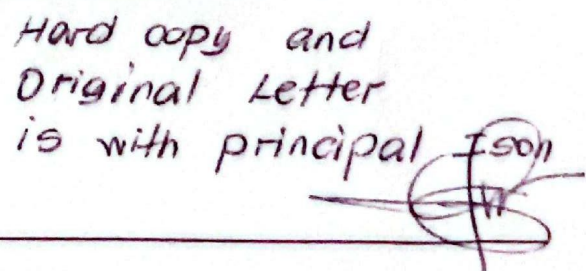 Hard copy and
Original Letter
is with principal Ison